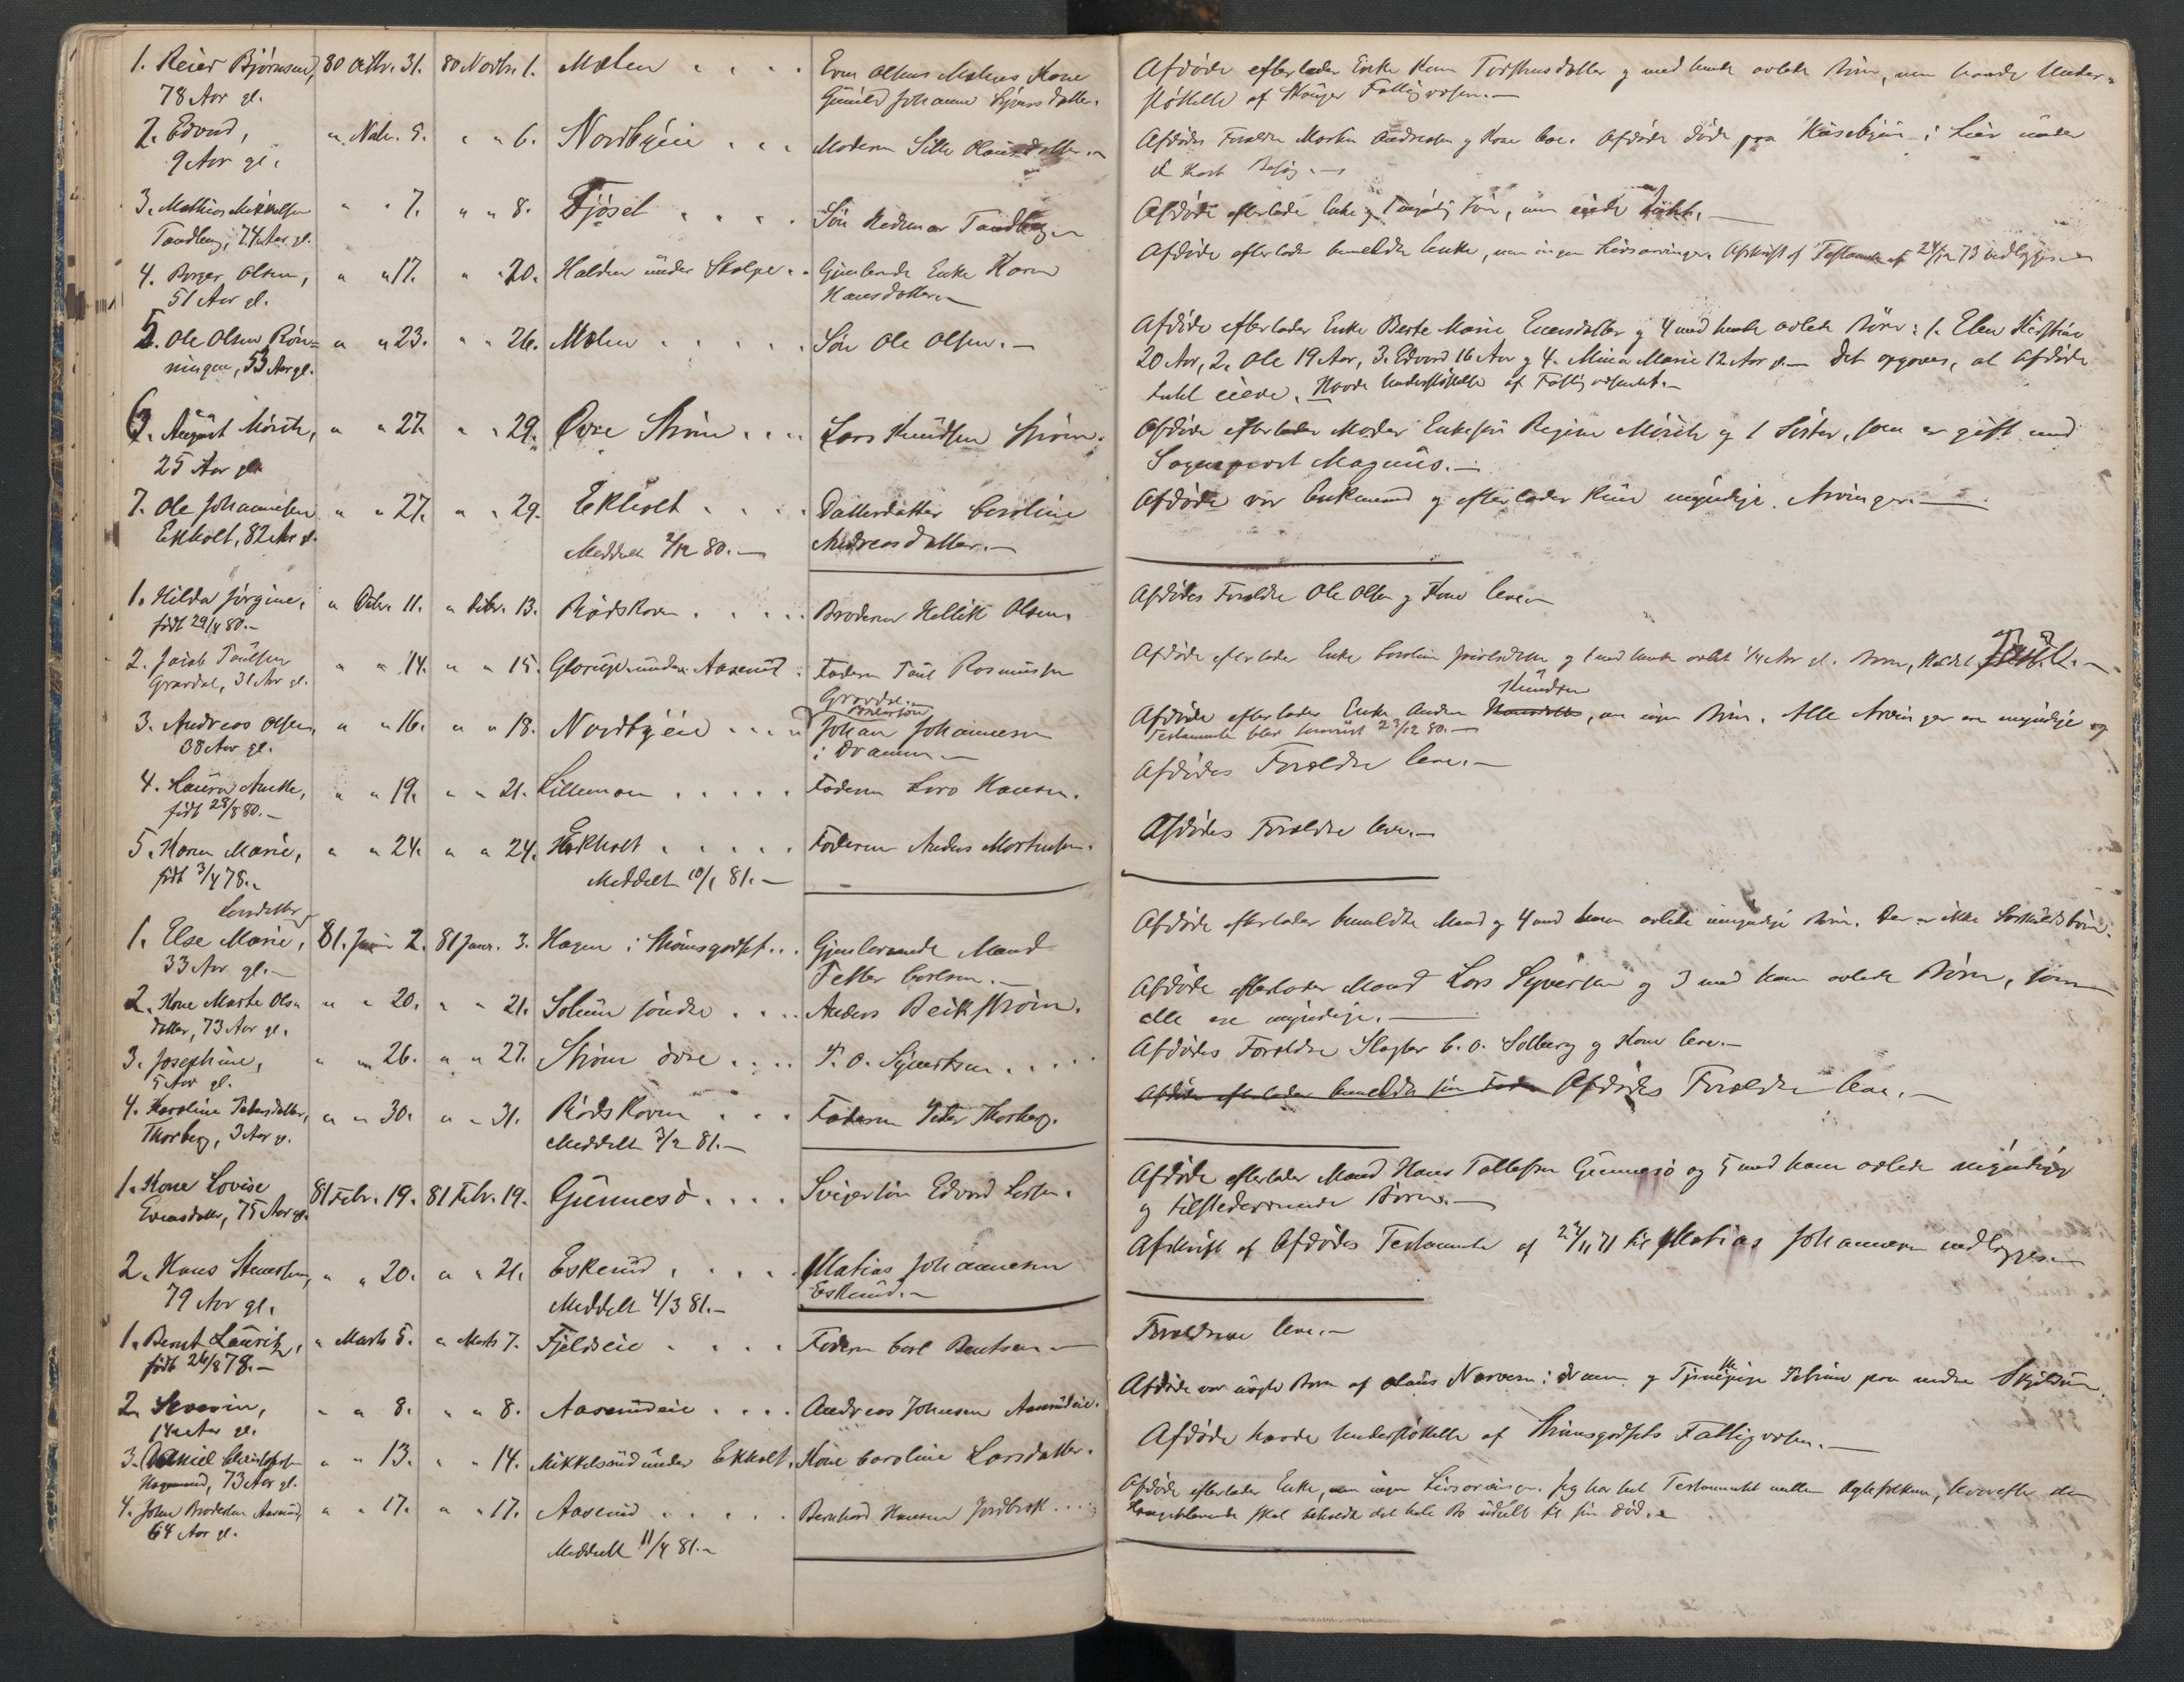 1. Reier Bjørnsen, 80 Octbr. 31. 80 Novbr. 1. Molen . . . . Even Olsens Molens Kone Afdøde efterlader Enke Karn Torstensdatter og med hende avlede Børn, men havde Under=
78 Aar gl. Gunild Johanne datter. støttelse af Skouger Fattigvæsen.—
2. Edvard, " Novbr. 5. " " 6. Nordbyeie . . . Moderen datter. Afdødes Forældre Martin Andersen og Kone leve. Afdøde døde paa i Lier under
9 Aar gl. et kort Besøg.—
3. Mathias Mikkelsen " " 7. " " 8. Fjøset . . . . Søn Tandberg.— Afdøde efterlader Enke og 1 myndig Søn, men eiede Intet.—
Tandberg, 74 Aar gl.
4. Olsen, " " 17. " " 20. Halden under Skolpe . . Gjenlevende Enke Karen Afdøde efterlader bemeldte Enke, men ingen Livsarvinger. Afskrift af Testament af 24/12 73 vedlægges.—
51 Aar gl. Hansdatter.—
5. Ole Olsen Røn= " " 23. " " 26. Molen . . . . . Søn Ole Olsen.— Afdøde efterlader Enke Berte Marie Evensdatter og 4 med hende avlede Børn: 1. Elen
ningen, 53 Aar gl. 20 Aar, 2. Ole 19 Aar, 3. Edvard 16 Aar og 4. Mina Marie 12 Aar gl.— Det opgives, at Afdøde
Intet eiede. Havde Understøttelse af Fattigvæsenet.—
6. August Mörch, " " 27. " " 29. Øvre Strøm . . . . Lars Knudsen Strøm. Afdøde efterlader Moder Enkefru Regine Mörch og 1 Søster, som er gift med
25 Aar gl. Sogneprest Magnus.—
7. Ole Johannesen " " 27. " " 29. Ekholt . . . . Datterdatter Caroline Afdøde var Enkemand og efterlader kun myndige Arvinger.—
Ekholt, 82 Aar gl. Meddelt 2/12 80.— Andreasdatter.—
1. Hilda Jørgine, " Decbr. 11. " Decbr. 13. Rødskoven . . . . Broderen Hellik Olsen. Afdødes Forældre Ole Olsen og Kone leve.—
født 29/4 80.—
2. Jacob Paulsen " " 14. " " 15. under Aaserud . Faderen Paul Rasmussen Afdøde efterlader Enke Caroline og 1 med hende avlet 1/4 Aar gl. Barn,
Gravdal, 31 Aar gl. Gravdal.—
3. Andreas Olsen, " " 16. " " 18. Nordbyeie . . . Brodersøn Johan Johannesen Afdøde efterlader Enke Anders Knudsen, men ingen Børn. Alle Arvinger ere myndige og
68 Aar gl. i Drammen.— Testamente blev 23/12 80.—
4. Laura Amalie, " " 19. " " 21. Lilleman . . . . . Faderen Lars Hansen. Afdødes Forældre leve.—
født 28/8 80.—
5. Karen Marie, " " 24. " " 24. Ekholt . . . . . Faderen Anders Mortensen. Afdødes Forældre leve.—
født 3/4 78.— Meddelt 10/1 81.—
Larsdatter
1. Else Marie, 81. Januar 2. 81 Janr. 3. Hagen i Strømsgodset . . . Gjenlevende Mand Afdøde efterlader bemeldte Mand og 4 med ham avlede umyndige Børn. Der er ikke Særkuldsbørn.
33 Aar gl.— Petter Carlsen.—
2. Kone Marte Ols= " " 20. " " 21. Solum søndre . . . . Anders Beik Strøm. Afdøde efterlader Mand Lars Syversen og 3 med ham avlede Børn, som
datter, 73 Aar gl. alle ere myndige.—
3. Josephine, " " 26. " " 27. Strøm øvre . . . . P. O. Syvertsen . . . . Afdødes Forældre Slagter C. O. Solberg og Kone leve.—
5 Aar gl.
4. Karoline Petersdatter, " " 30. " " 31. Rødskoven . . . Faderen Peter Thorberg. Afdøde efterlader bemeldte sin Fader Afdødes Forældre leve.—
Thorberg, 3 Aar gl. Meddelt 3/2 81.—
1. Kone Lovise 81 Febr. 19. 81 Febr. 19. Gunnesø . . . . Svigersøn Edvard Larsen. Afdøde efterlader Mand Hans Tollefsen Gunnesø og 5 med ham avlede myndige
Evensdatter, 75 Aar gl. og tilstedeværende Børn.—
2. Hans Steversen, " " 20. " " 21. Eskerud . . . . . Matias Johannesen Afskrift af Afdødes Testamente af 23/11 71 til Matias Johannesen vedlægges.—
79 Aar gl. Meddelt 4/3 81.— Eskerud.—
1. Bernt Lauritz, " Marts 5. " Marts 7. Fjeldseie . . . . Faderen Carl Bentsen.— Forældrene leve.—
født 26/8 78.—
2. Severin, " " 8. " " 8. Aaserudeie . . . . Andreas Johnsen Aaserudeie. Afdøde var uægte Barn af Olaus Narvesen i Drammen og Tjenstepige paa nedre Skjelsum.
14 Aar gl.
3. Daniel Christophersen " " 13. " " 14. Mikkelsrud under Ekholt. Kone Caroline Larsdatter. Afdøde havde Understøttelse af Strømsgodsets Fattigvæsen.—
73 Aar gl.
4. John Brodersen Aaserud, " " 17. " " 17. Aaserud . . . . . Bernhard Hansen Jordbræk . . . . Afdøde efterlader Enke, men ingen Livsarvinger. Jeg har læst Testamentet mellem Ægtefolkene, hvorefter den
64 Aar gl. Længstlevende skal beholde det hele Bo udelt til sin Død.—
Meddelt 11/4 81.—